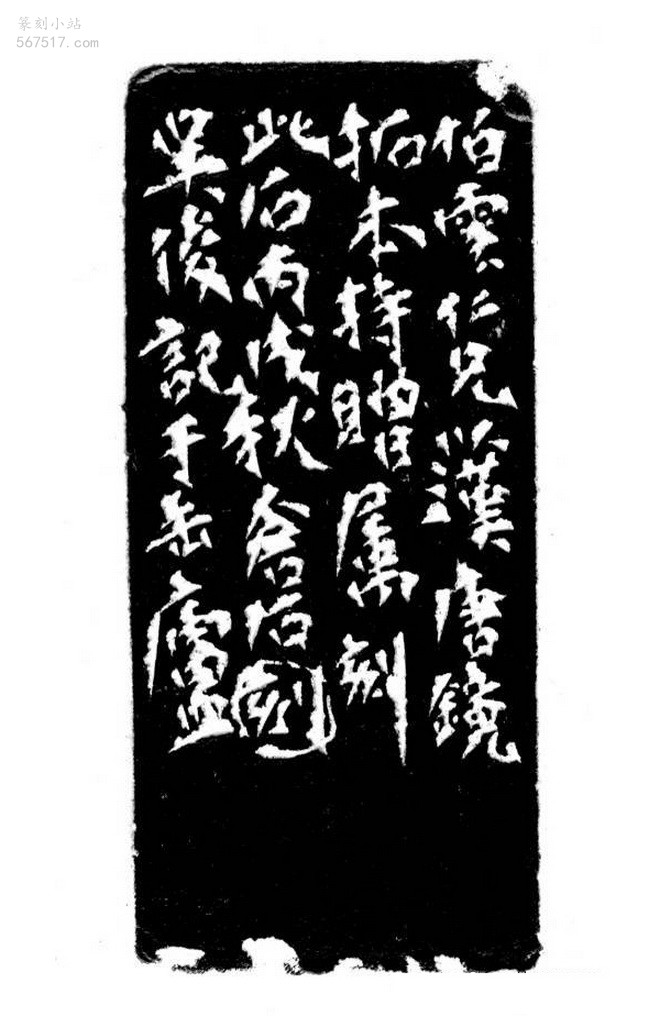 篆刻小站
567517.com
伯雲仁兄以漢唐鏡
拓本持贈屬刻
此石丙戌秋倉石刻
畢後記于缶廬